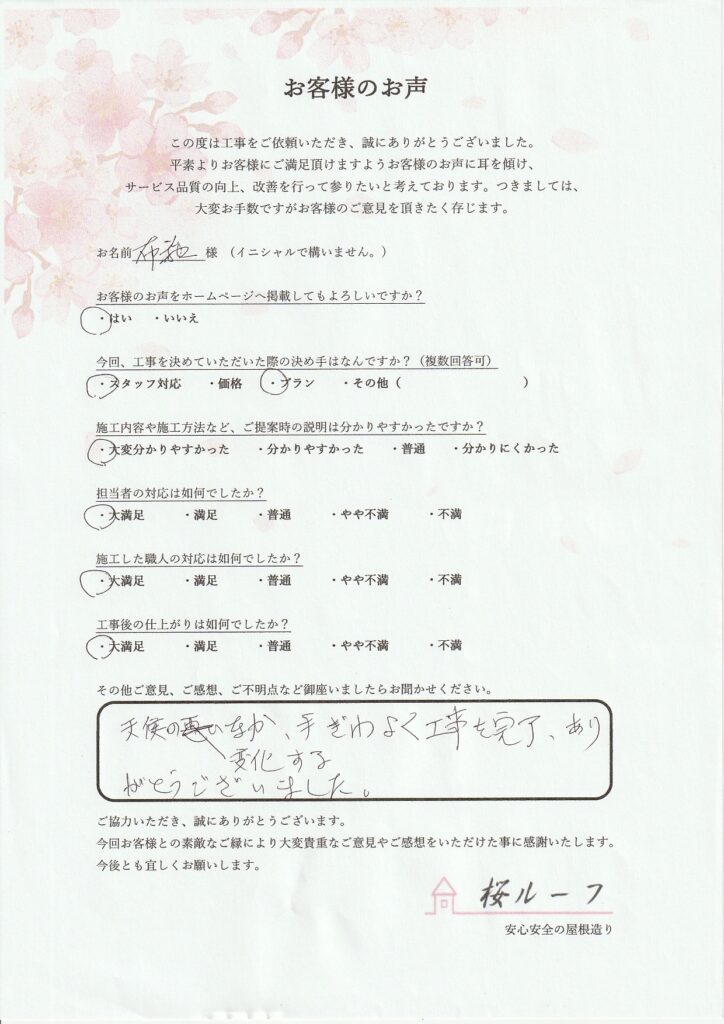 お客様のお声
この度は工事をご依頼いただき、誠にありがとうございました。
平素よりお客様にご満足頂けますようお客様のお声に耳を傾け、
サービス品質の向上、改善を行って参りたいと考えております。つきましては、
大変お手数ですがお客様のご意見を頂きたく存じます。
お名前 布施 様 （イニシャルで構いません。）
お客様のお声をホームページへ掲載してもよろしいですか？
・はい ・いいえ
今回、工事を決めていただいた際の決め手はなんですか？（複数回答可）
・スタッフ対応 ・価格 ・プラン ・その他（ ）
施工内容や施工方法など、ご提案時の説明は分かりやすかったですか？
・大変分かりやすかった ・分かりやすかった ・普通 ・分かりにくかった
担当者の対応は如何でしたか？
・大満足 ・満足 ・普通 ・やや不満 ・不満
施工した職人の対応は如何でしたか？
・大満足 ・満足 ・普通 ・やや不満 ・不満
工事後の仕上がりは如何でしたか？
・大満足 ・満足 ・普通 ・やや不満 ・不満
その他ご意見、ご感想、ご不明点など御座いましたらお聞かせください。
天候の なか、手ぎわよく工事を完了、あり
変化する
がとうございました。
ご協力いただき、誠にありがとうございます。
今回お客様との素敵なご縁により大変貴重なご意見やご感想をいただけた事に感謝いたします。
今後とも宜しくお願いします。
桜ルーフ
安心安全の屋根造り